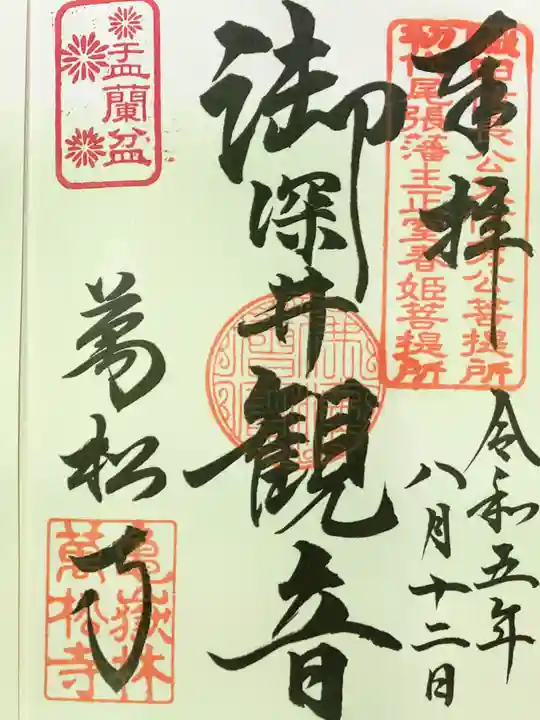 奉拝
初代尾張藩主正室春姫菩提所
令和五年
八月十二日
御深井観音
盂蘭盆
萬松寺
亀嶽林
萬松寺